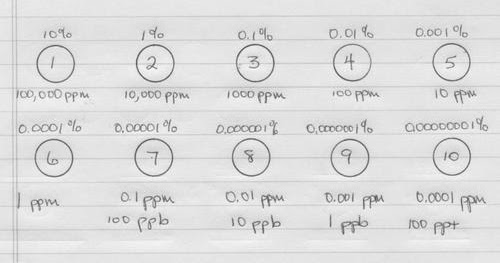 10% 1% 0.1% 0.01% 0.001%
1 2 3 4 5
100,000 ppm 10,000 ppm 1000 ppm 100 ppm 10 ppm
0.0001% 0.00001% 0.000001% 0.0000001% 0.00000001%
6 7 8 9 10
1 ppm 0.1 ppm 0.01 ppm 0.001 ppm 0.0001 ppm
100 ppb 10 ppb 1 ppb 100 ppt